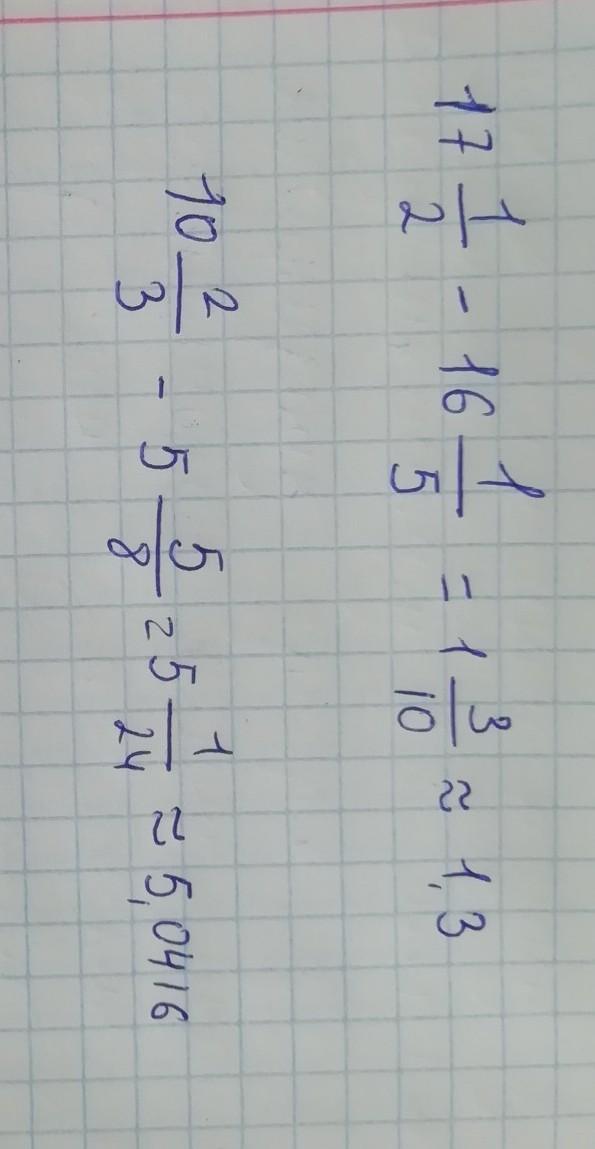 17 1/2 - 16 1/5 = 1 3/10 ≈ 1,3
10 2/3 - 5 5/8 = 5 1/24 ≈ 5,0416